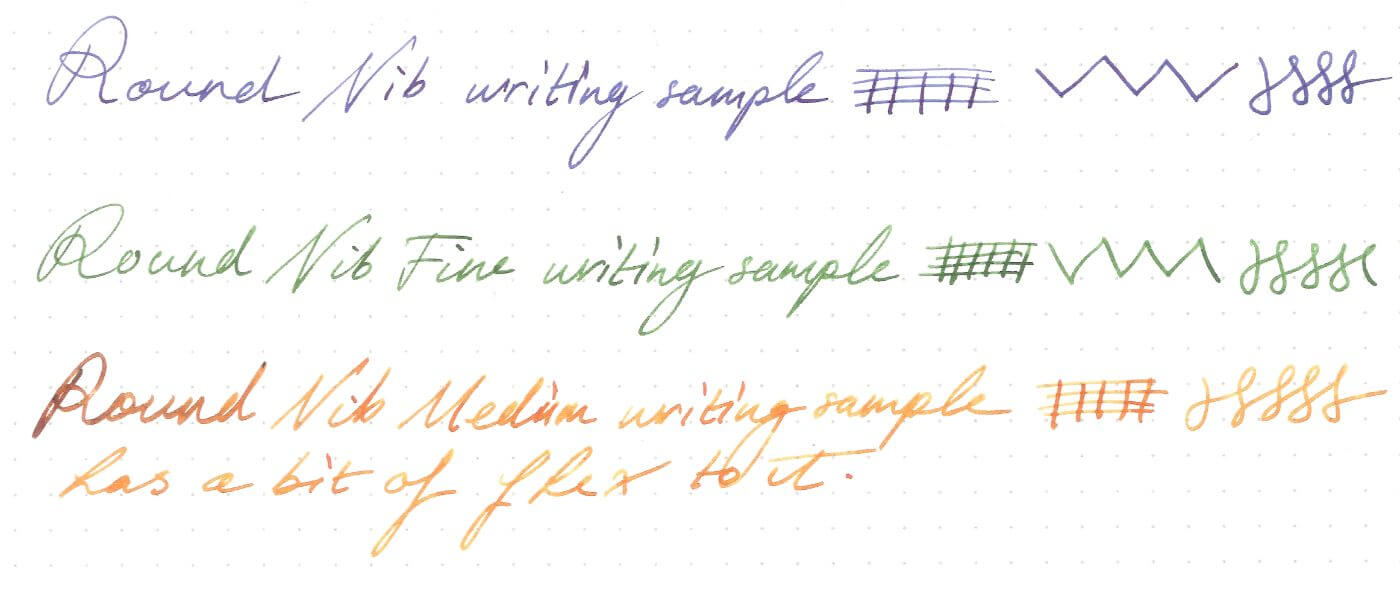 Round Nib writing sample
Round Nib Fine writing sample
Round Nib Medium writing sample
has a bit of flex to it.